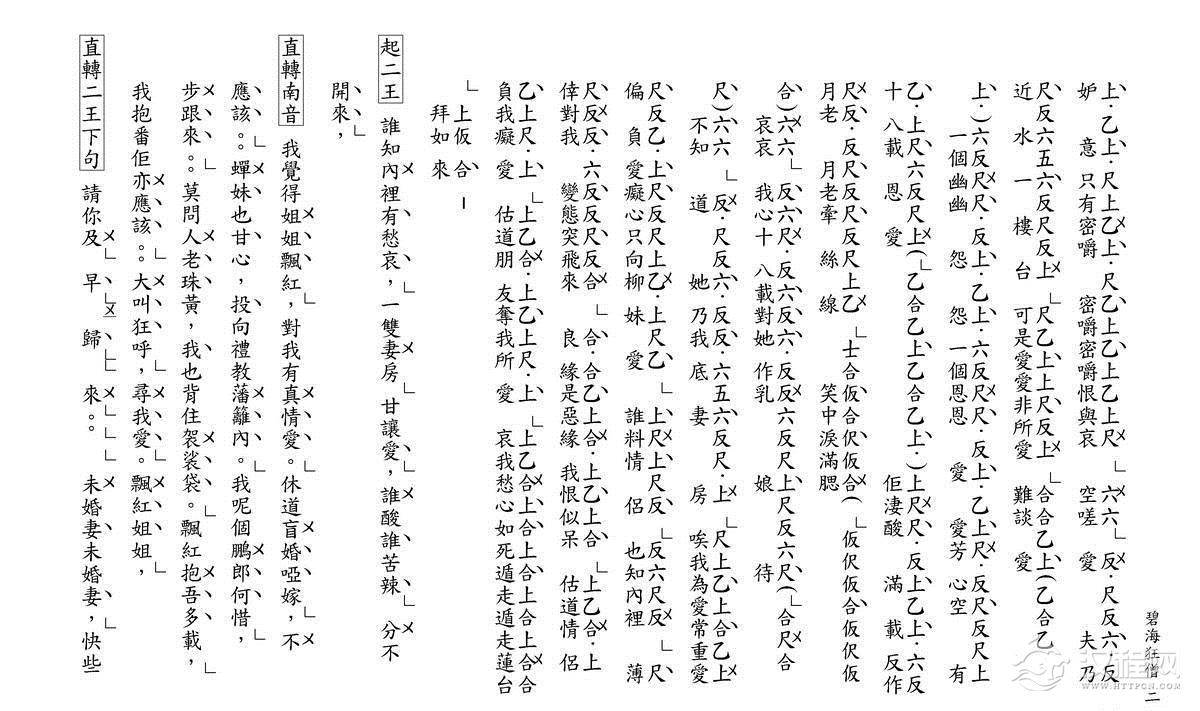 碧海狂僧 二
上·乙上·尺上乙上·尺乙上乙上乙上尺 六六 反·尺反六反
妒意只有密嚼 密嚼密嚼恨與哀 空嗟 愛 夫乃
尺反六五六反尺反上 尺乙上上尺反上 合合乙上(乙合乙
近水一樓台 可是愛愛非所愛 難談 愛
上·)六反尺尺·反上·乙上·六反尺尺·反上·乙上尺·反尺反尺上
一個幽幽 怨 怨 一個恩恩 愛 愛芳 心空 有
乙·上尺六反尺上(乙合乙上乙合乙上·)上尺尺·反上乙上·六反
十八載恩愛 佢淒酸 滿 載 反作
尺反·反尺反尺反尺上乙 士合仮合伬仮合(仮伬仮合仮伬仮
月老 月老牽 絲 線 笑中淚滿腮
合)六六 反六尺·反六反六·反反六反尺上尺反六尺(合尺合
哀哀 我心十 八載對她 作乳 娘 待
尺)六六 反·尺反六·反反·六五六反尺·上 尺上乙上合乙上
不知 道 她 乃我 底 妻 房 唉我為愛常重愛
尺反乙·上尺反尺上乙·上尺乙 上尺上尺反 反六尺反 尺
偏負愛癡心只向柳妹愛 誰料情侶 也知內裡 薄
尺反反·六反反尺反合 合·合乙上合·上乙上合 上乙合·上
倖對我 變態突飛來 良緣是惡緣 我恨似呆 估道情侶
乙上尺·上 上乙合·上乙上尺·上 上乙合上上合上合上合上合合
負我癡愛 估道朋友奪我所愛 哀我愁心如死遁走遁走蓮台
上仮合
拜如來
起二王 誰知內裡有愁哀，一雙妻房甘讓愛，誰酸誰苦辣 分不
開來，
直轉南音 我覺得姐姐飄紅，對我有真情愛。休道盲婚啞嫁，不
應該。。蟬妹也甘心，投向禮教藩籬內。我呢個鵬郎何惜，
步跟來。。莫問人老珠黃，我也背住袈裟袋。飄紅抱吾多載，
我抱番佢亦應該。。大叫狂呼，尋我愛。飄紅姐姐，
直轉二王下句 請你及早歸來。。 未婚妻未婚妻，快些
汉程网
WWW.HTTPCN.COM